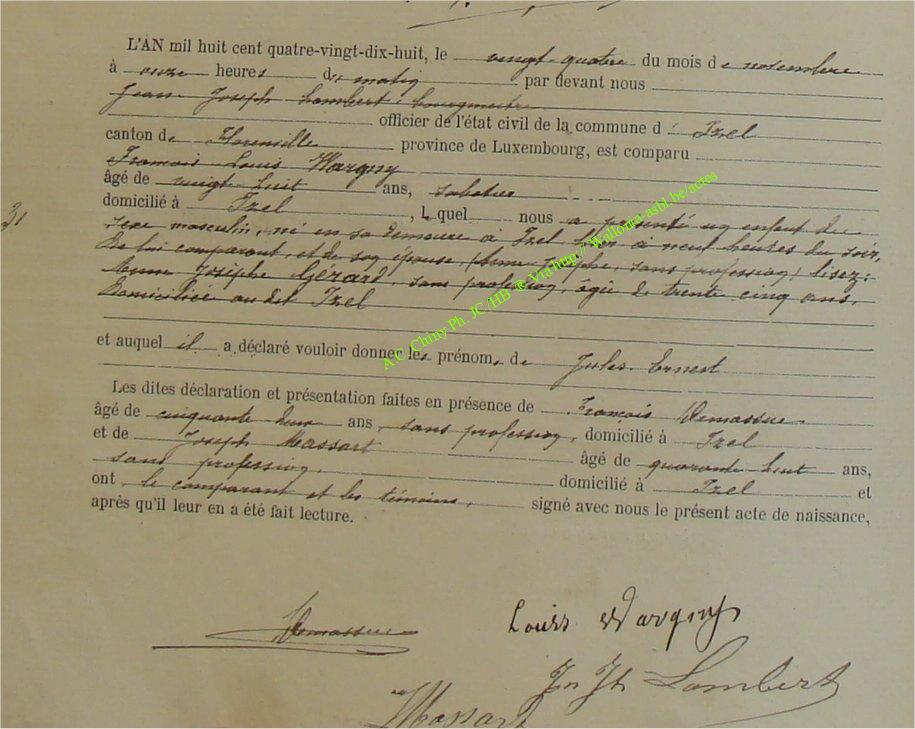 L'AN mil huit cent quatre-vingt-dix-huit, le vingt-quatre du mois de novembre
à onze heures du matin par devant nous
Jean Joseph Lambert, bourgmestre
officier de l'état civil de la commune d' Izel
canton de Florenville province de Luxembourg, est comparu
François Louis Wargny
âgé de vingt huit ans, sabotier
domicilié à Izel, lequel nous a présenté un enfant du
sexe masculin, né en sa demeure à Izel hier à neuf heures du soir,
de lui comparant, et de son épouse, (Anne Josèphe, sans profession) lisez:
Anne Josèphe Gérard, sans profession, âgée de trente cinq ans,
domiciliée au dit Izel
et auquel il a déclaré vouloir donner les prénoms de Jules Ernest
Les dites déclaration et présentation faites en présence de François Demassue
âgé de cinquante ans, sans profession, domicilié à Izel
et de Joseph Massart âgé de quarante huit ans,
sans profession, domicilié à Izel et
ont le comparant et les témoins, signé avec nous le présent acte de naissance,
après qu'il leur en a été fait lecture.
Demassue
Louis Wargny
Jn Jh Lambert
Massart
A.C. Chiny Ph. JC/HB ® Via http://Wallonia-asbl.be/actes